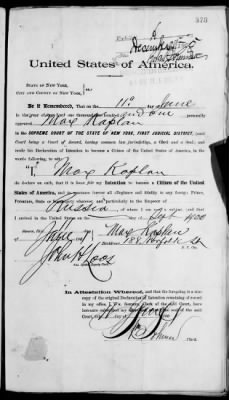 373
United States of America.
STATE OF NEW YORK,
CITY AND COUNTY OF NEW YORK, } ss.:
Be it Remembered, That on the 11th day June
in the year
appeared Max Kaplan
in the SUPREME COURT OF THE STATE OF NEW YORK, FIRST JUDICIAL DISTRICT, (said
Court being a Court of Record, having common law jurisdiction, a Clerk and a Seal) and
made his Declaration of Intention to become a Citizen of the United States of America, in the
words following, to wit:
"I, Max Kaplan
do declare on oath, that it is bona fide my Intention to become a Citizen of the United
States of America, and to renounce forever all allegiance and fidelity to any foreign Prince,
Potentate, State or Sovereignty whatever, and particularly to the Emperor
of Russia of whom I am now a subject, and that
I arrived in the United States on the day Sept 1900
Max Kaplan
Residence 188 Norfolk St
N. Y. City.
In Attestation Whereof, and that the foregoing is a true
copy of the original Declaration of Intention remaining of record
in my office, I, Wm. Sohmer, Clerk of the said Court, have
hereunto subscribed my name and affixed the seal of the said
Court, this day of
Wm Sohmer Clerk.